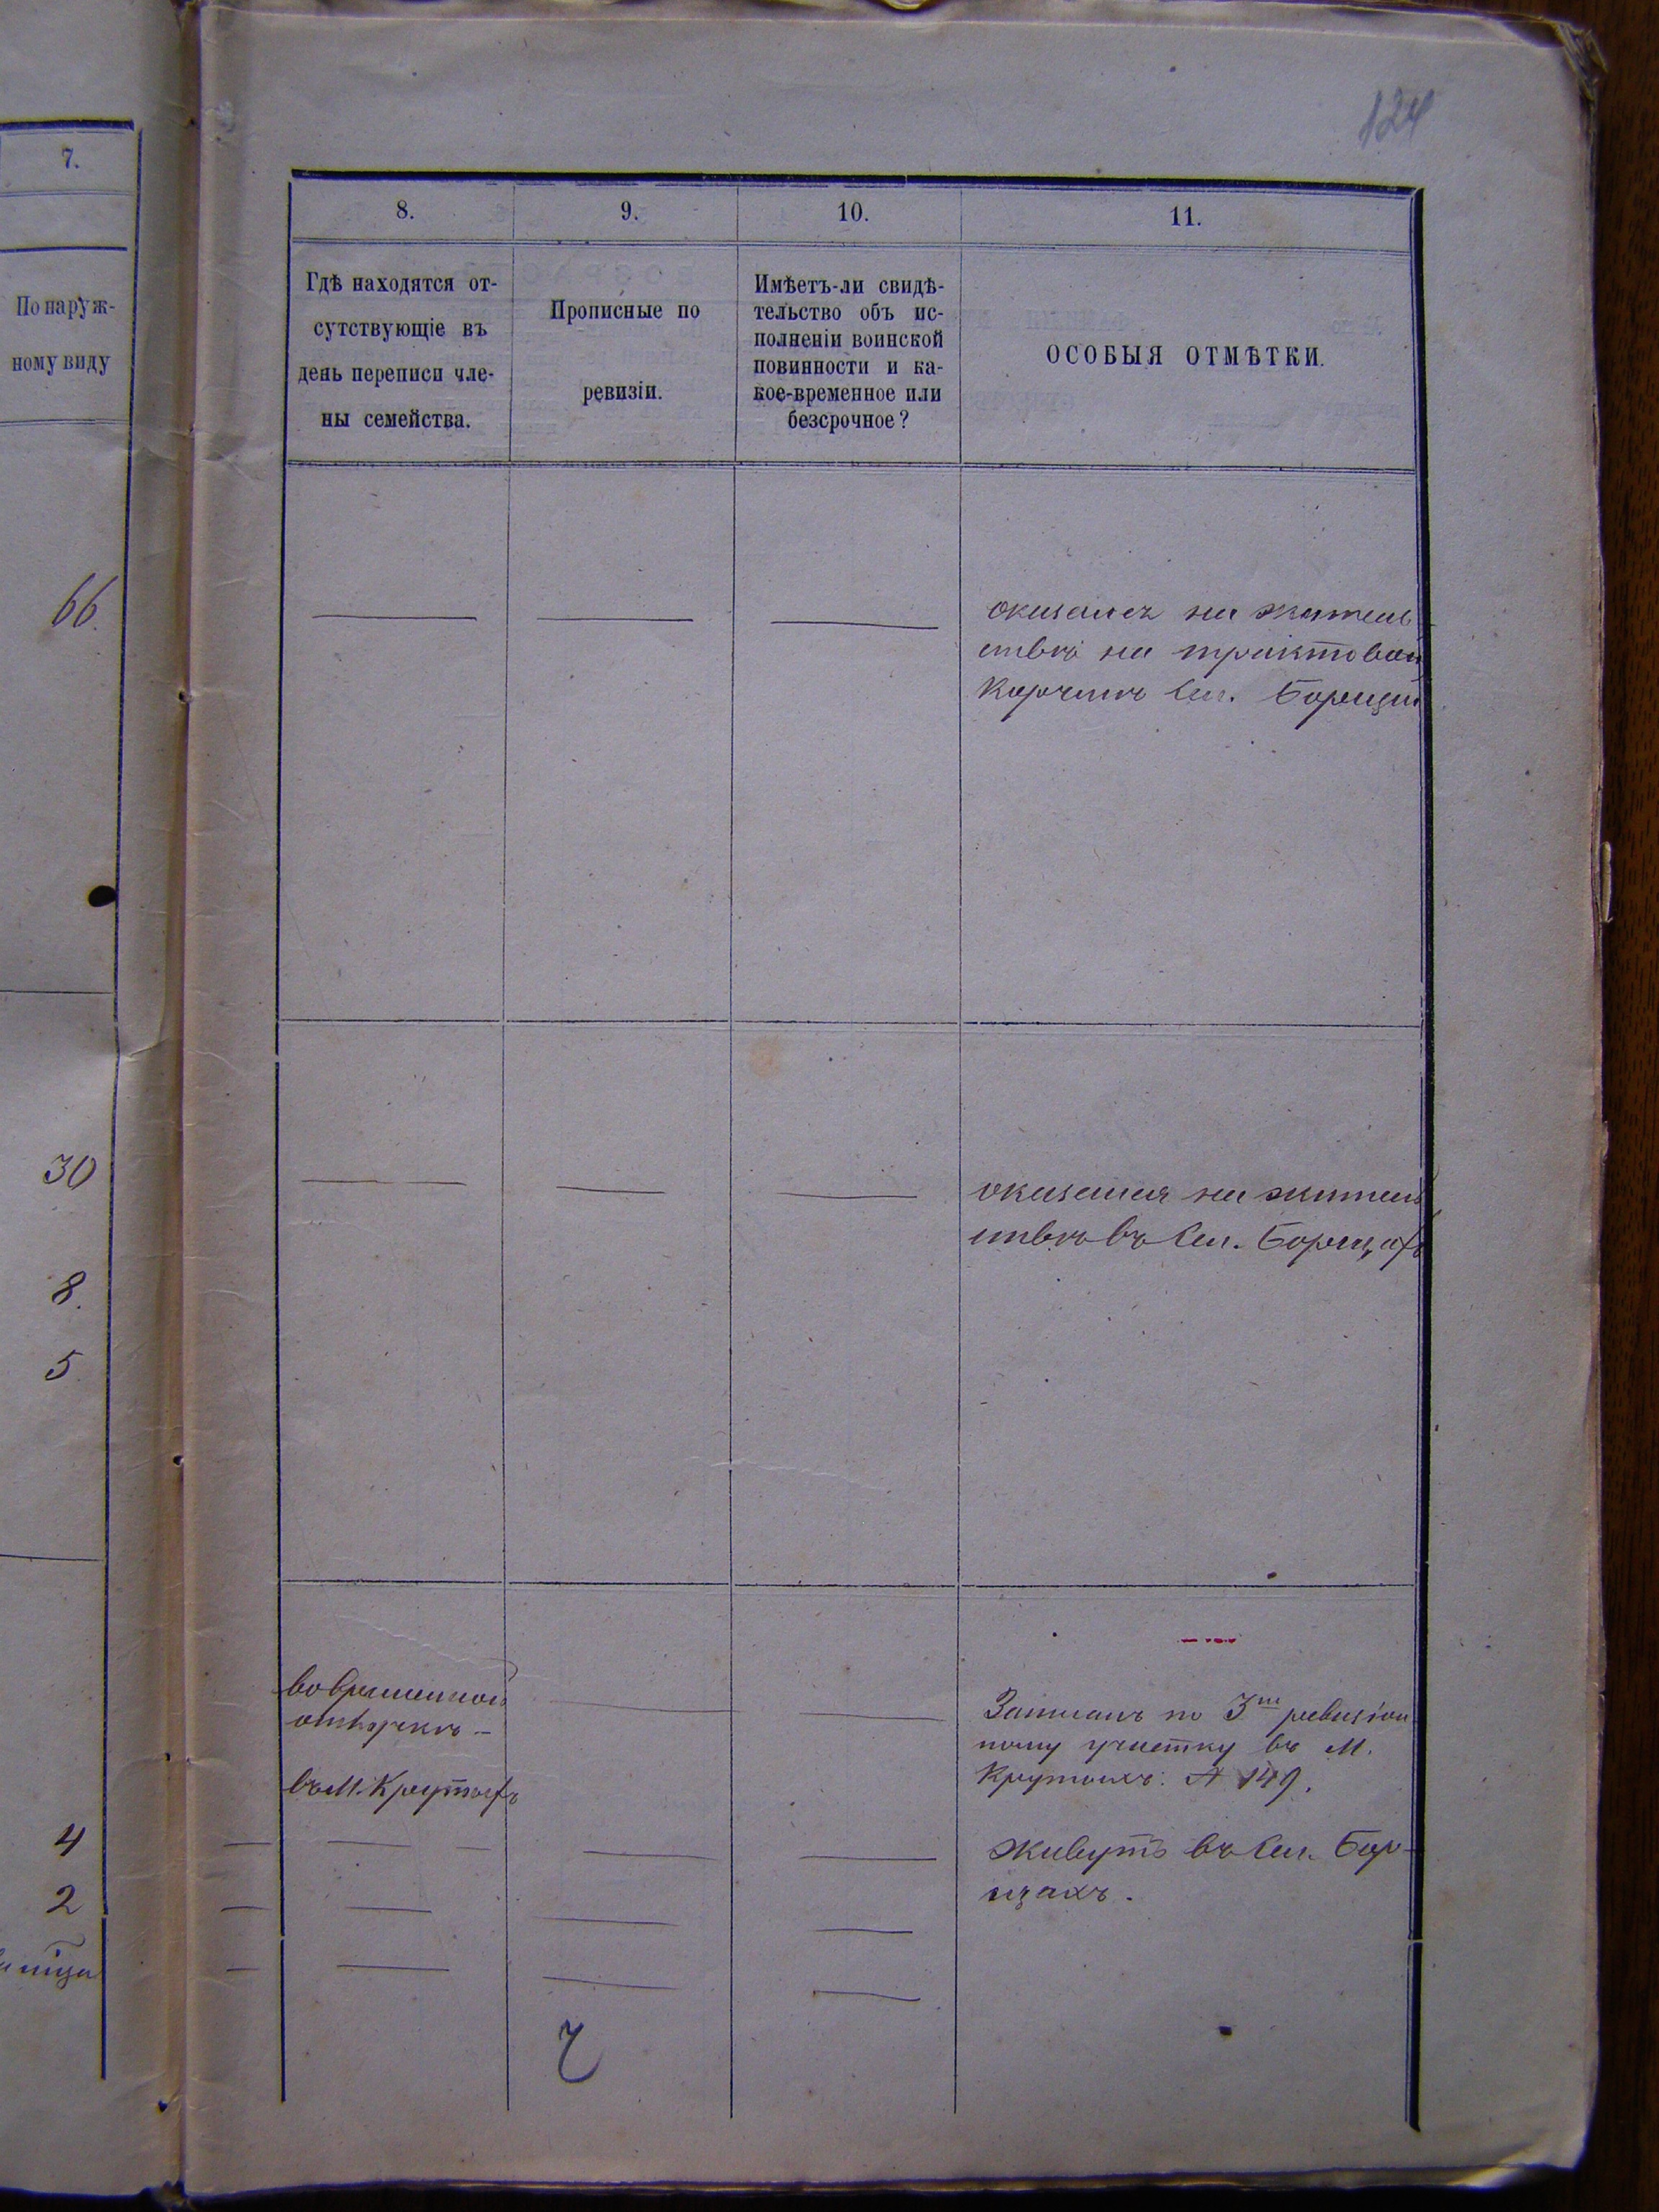 124
7.
По наруж-
ному виду
66.
30
8.
5
4
2
8.
9.
10.
11.
Гдѣ находятся от-
сутствующіе въ
день переписи чле-
ны семейства.
Прописные по
ревизіи.
Имѣетъ-ли свидѣ-
тельство объ ис-
полненіи воинской
повинности и ка-
кое-временное или
безсрочное?
ОСОБЫЯ ОТМѢТКИ.
оказался на житель
ствѣ на трактовой
Корчмѣ Сел. Борщи
оказался на житель
ствѣ въ Сел. Борщахъ
во временной
отлучкѣ –
въ М. Крутыхъ
Записанъ по 3му ревизіон
ному участку въ М.
Крутыхъ. № 149.
Живутъ въ Сел. Бор-
щахъ.